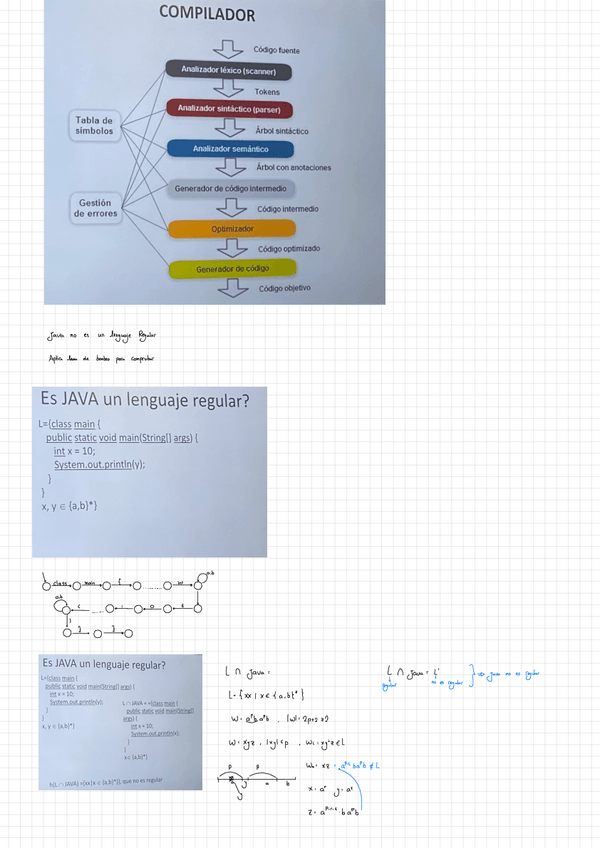 COMPILADOR
Código fuente
Analizador léxico (scanner)
Tokens
Analizador sintáctico (parser)
Árbol sintáctico
Tabla de
símbolos
Analizador semántico
Árbol con anotaciones
Generador de código intermedio
Gestión
de errores
Código intermedio
Optimizador
Código optimizado
Generador de código
Código objetivo
Java no es un lenguaje Regular
Aplica lema de bombeo para comprobar
Es JAVA un lenguaje regular?
L={class main {
public static void main(String[] args) {
int x = 10;
System.out.println(y);
}
}
x, y ∈ {a,b}*}
class main { ........ int a,b
a,b ; ..... 0 1 =
) } }
Es JAVA un lenguaje regular?
L={class main {
public static void main(String[] args) {
int x = 10;
System.out.println(y);
}
}
x, y ∈ {a,b}*}
L ∩ JAVA ={class main {
public static void main(String[]
args) {
int x = 10;
System.out.println(x);
}
}
x ∈ {a,b}*}
h(L ∩ JAVA) ={xx|x ∈ {a,b}*}, que no es regular
L ∩ Java =
L = {xx | x ∈ {a,b}*}
w = aᵖb aᵖb , |w| = 2p+2 ≥
w = xyz , |xy| ≤ p , wᵢ = xyⁱz ∈ L
p p
y a b
w₀ = xz = baᵖb ∉ L
x = aʳ y = aˢ
z = baᵖb
L ∩ Java = L' } => Java no es regular
regular no es regular